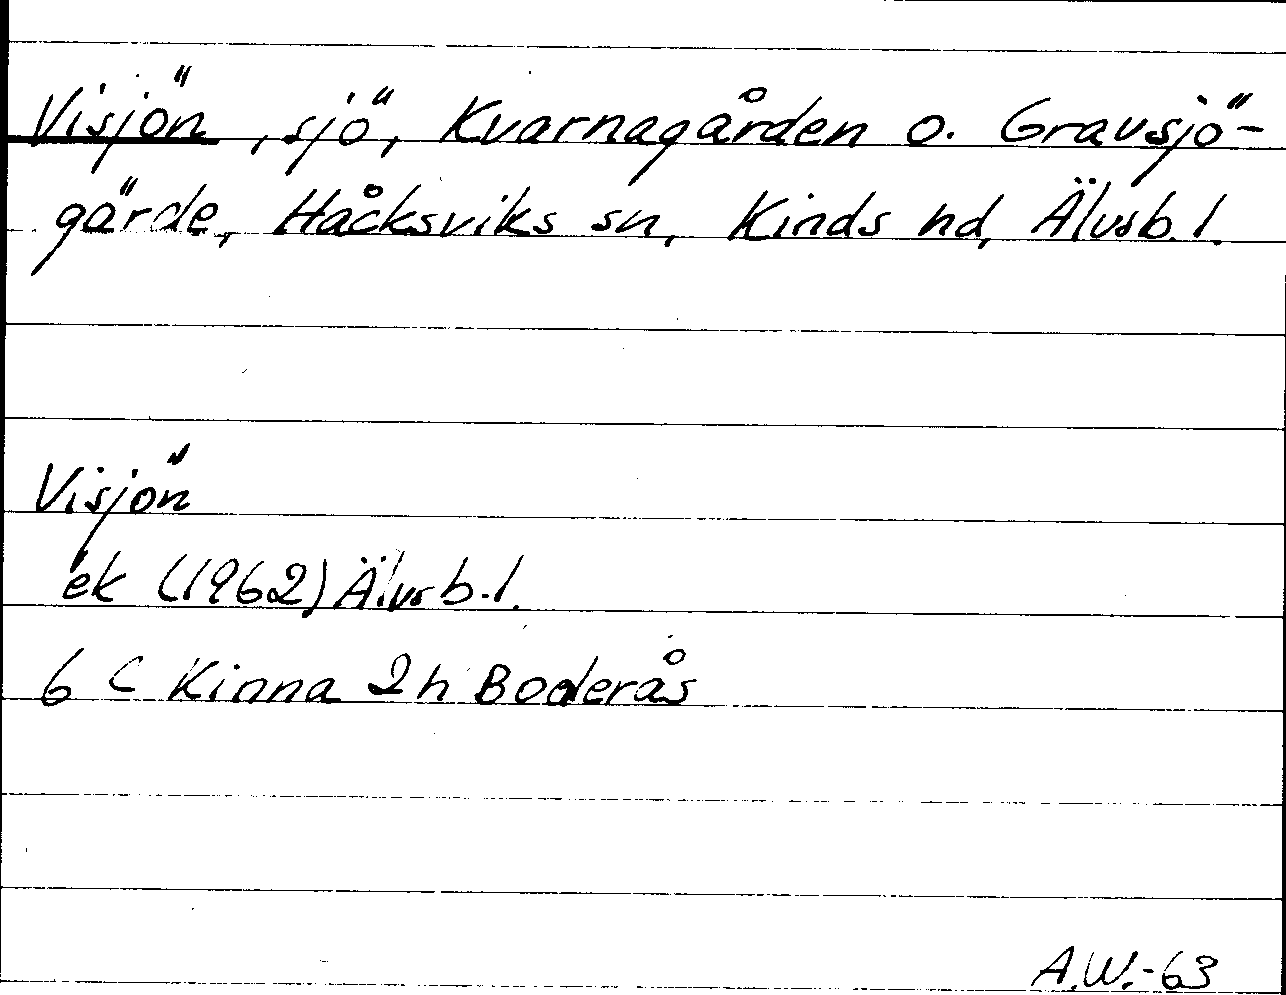 Visjön, sjö, Kvarnagården o. Gravsjö-
gärde, Håcksviks sn, Kinds hd, Älvsb. l.
Visjön
ek (1962) Älvsb. l.
6 C Kinna 2h Boderås
A.W.-63